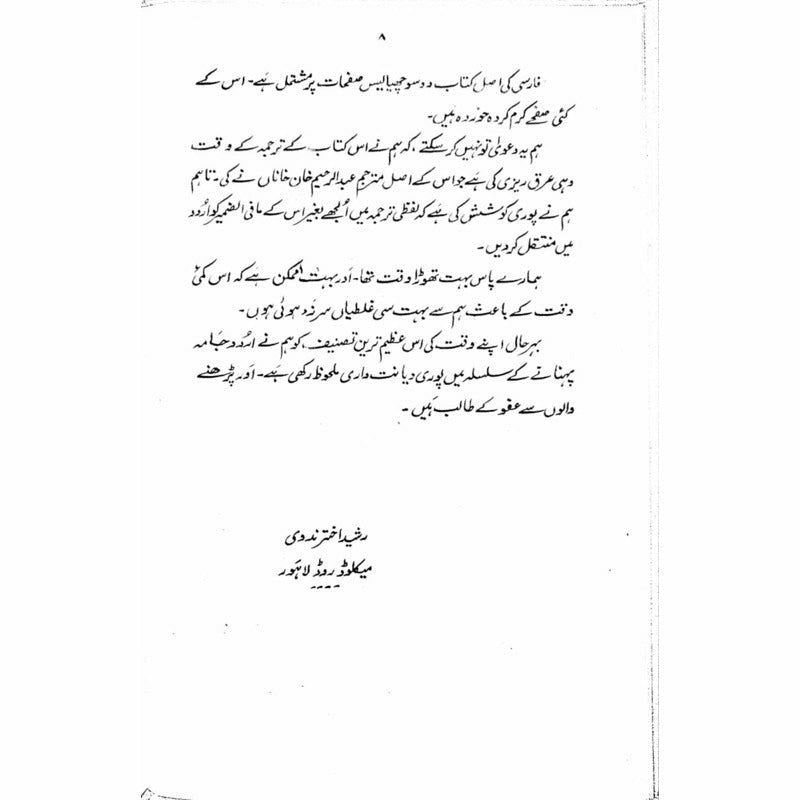 ۸
فارسی کی اصل کتاب دو سو چھیالیس صفحات پر مشتمل ہے۔ اس کے
کئی صفحے کرم کردہ خوردہ ہیں۔
ہم یہ دعویٰ تو نہیں کر سکتے، کہ ہم نے اس کتاب کے ترجمہ کے وقت
وہی عرق ریزی کی ہے جو اس کے اصل مترجم عبدالرحیم خان خاناں نے کی۔ تاہم
ہم نے پوری کوشش کی ہے کہ لفظی ترجمہ میں اُلجھے بغیر اس کے مافی الضمیر کو اُردو
میں منتقل کر دیں۔
ہمارے پاس بہت تھوڑا وقت تھا۔ اور بہت ممکن ہے کہ اس کمیٔ
وقت کے باعث ہم سے بہت سی غلطیاں سرزد ہوئی ہوں۔
بہرحال اپنے وقت کی اس عظیم ترین تصنیف، کو ہم نے اردو جامہ
پہنانے کے سلسلہ میں پوری دیانت داری ملحوظ رکھی ہے۔ اور پڑھنے
والوں سے عفو کے طالب ہیں۔
رشید اختر ندوی
میکلوڈ روڈ لاہور